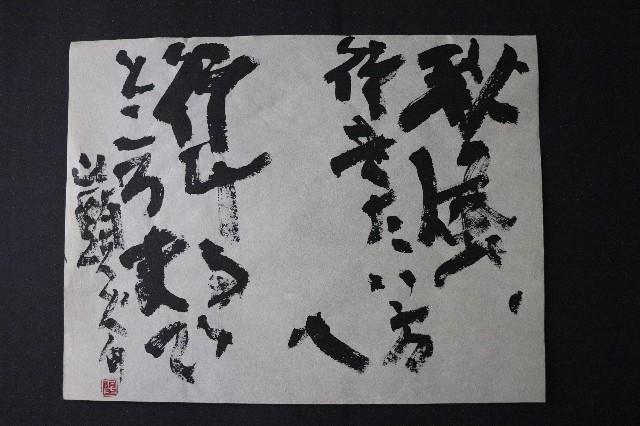 秋風、
行きたい方
へ
行ける
ところまで
山頭火句